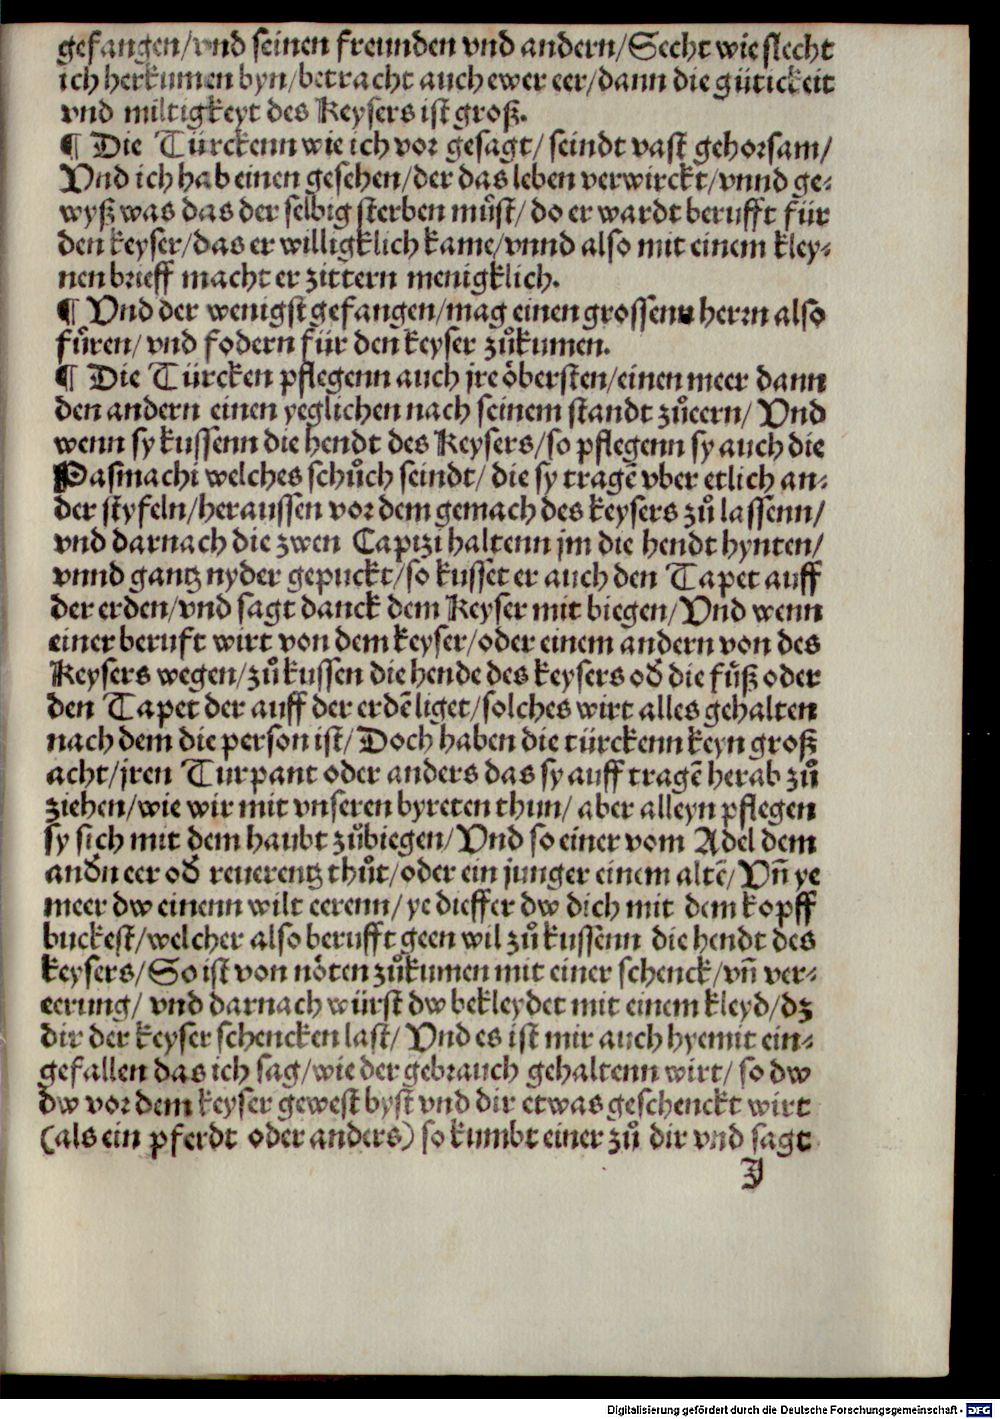 gefangen/vnd seinen freunden vnd andern/Secht wie slecht
ich herkumen byn/betracht auch ewer eer/dann die gütickeit
vnd miltigkeyt des Keysers ist groß.
¶ Die Türckenn wie ich vor gesagt/ seindt vast gehorsam/
Vnd ich hab einen gesehen/der das leben verwirckt/vnnd ge-
wyß was das der selbig sterben můst/ do er wardt berufft für
den keyser/das er willigklich kame/vnnd also mit einem kley-
nen brieff macht er zittern menigklich.
¶ Vnd der wenigst gefangen/mag einen grossenn herrn also
fůren/ vnd fodern für den keyser zůkumen.
¶ Die Türcken pflegenn auch jre öbersten/einen meer dann
den andern einen yeglichen nach seinem standt zůeern/ Vnd
wenn sy kussenn die hendt des Keysers/so pflegenn sy auch die
Pasmachi welches schůch seindt/ die sy tragē vber etlich an-
der styfeln/heraussen vor dem gemach des keysers zů lassenn/
vnd darnach die zwen Capizi haltenn jm die hendt hynten/
vnnd gantz nyder gepuckt/so kusset er auch den Tapet auff
der erden/vnd sagt danck dem Keyser mit biegen/Vnd wenn
einer beruft wirt von dem keyser/oder einem andern von des
Keysers wegen/zů kussen die hende des keysers od̄ die fůß oder
den Tapet der auff der erdē liget/solches wirt alles gehalten
nach dem die person ist/Doch haben die türckenn keyn groß
acht/jren Turpant oder anders das sy auff tragē herab zů
ziehen/wie wir mit vnseren byreten thun/ aber alleyn pflegen
sy sich mit dem haubt zůbiegen/Vnd so einer vom Adel dem
and̄n eer od̄ reuerentz thůt/oder ein junger einem altē/Vn̄ ye
meer dw einenn wilt eerenn/ye dieffer dw dich mit dem kopff
buckest/welcher also berufft geen wil zů kussenn die hendt des
keysers/So ist von nöten zůkumen mit einer schenck/vn̄ ver-
eerung/ vnd darnach würst dw bekleydet mit einem kleyd/dz
dir der keyser schencken last/Vnd es ist mir auch hyemit ein-
gefallen das ich sag/wie der gebrauch gehaltenn wirt/ so dw
dw vor dem keyser gewest byst vnd dir etwas geschenckt wirt
(als ein pferdt oder anders) so kumbt einer zů dir vnd sagt
J
Digitalisierung gefördert durch die Deutsche Forschungsgemeinschaft - DFG